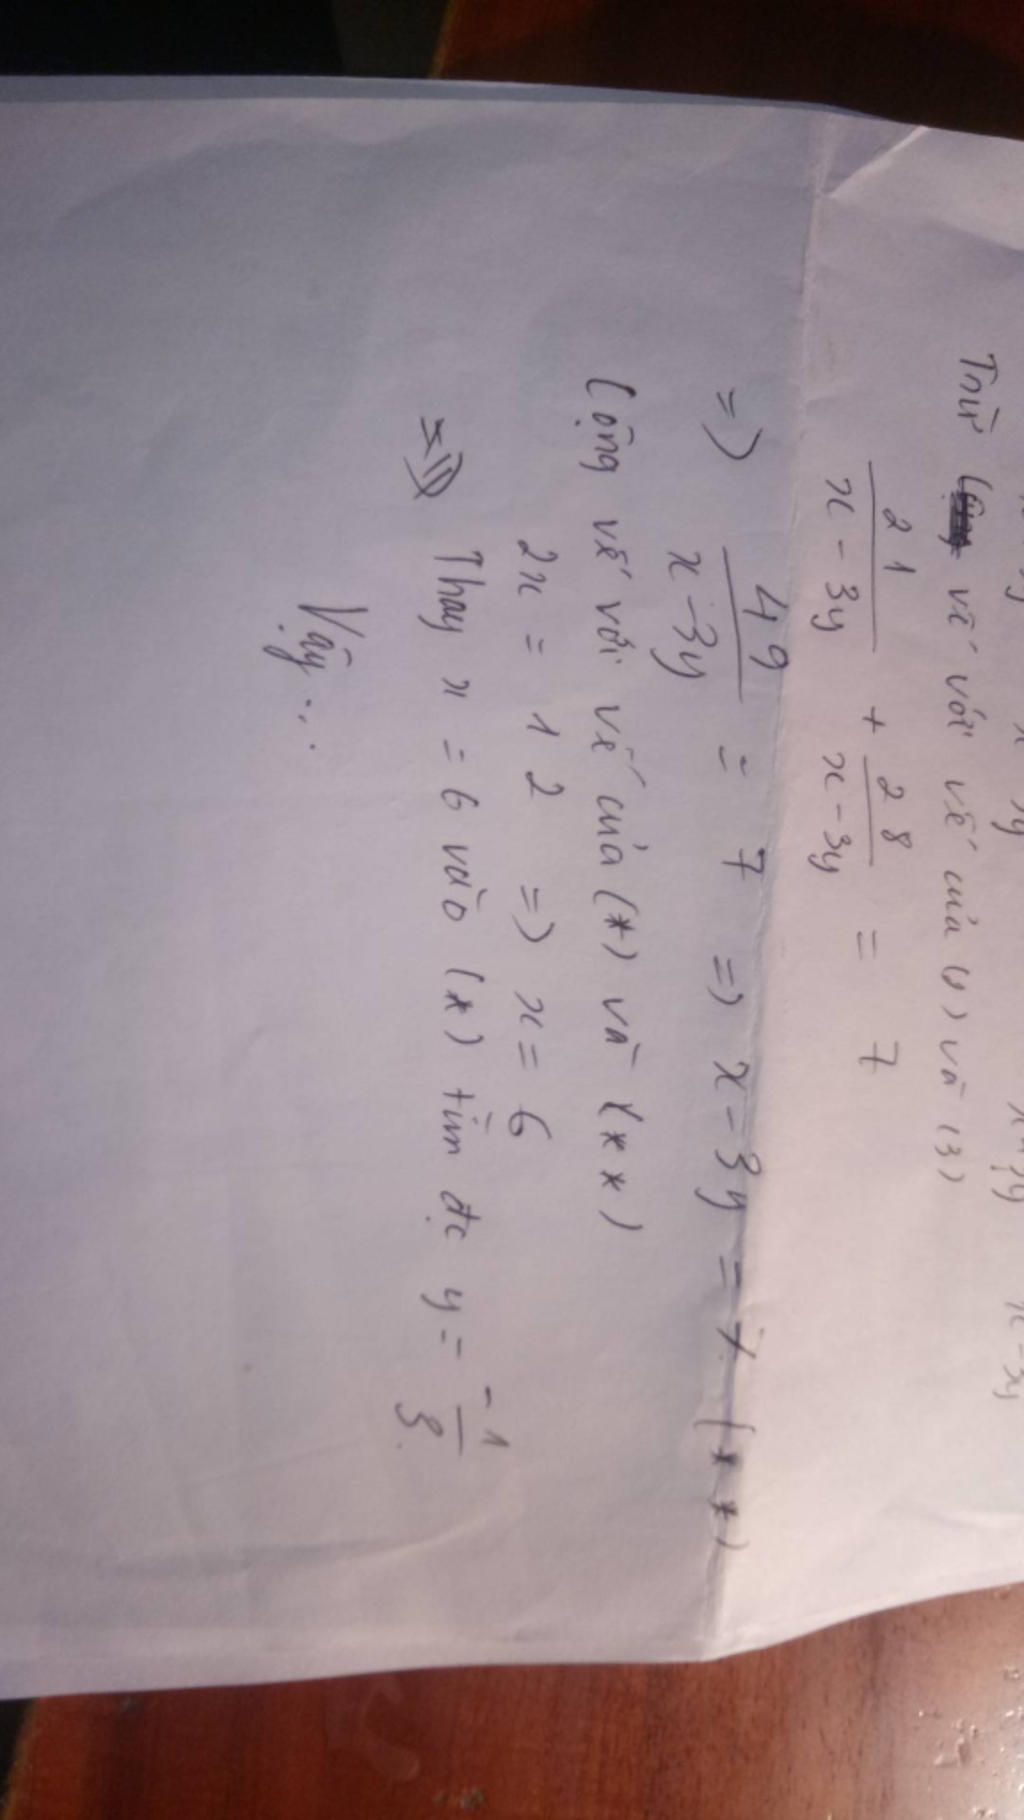 Trừ vế với vế của (1) và (3)
21/(x - 3y) + 28/(x - 3y) = 7
=> 49/(x - 3y) = 7 => x - 3y = 7 (**)
Cộng vế với vế của (*) và (**)
2x = 12 => x = 6
=> Thay x = 6 vào (*) tìm đc y = -1/3
Vậy...